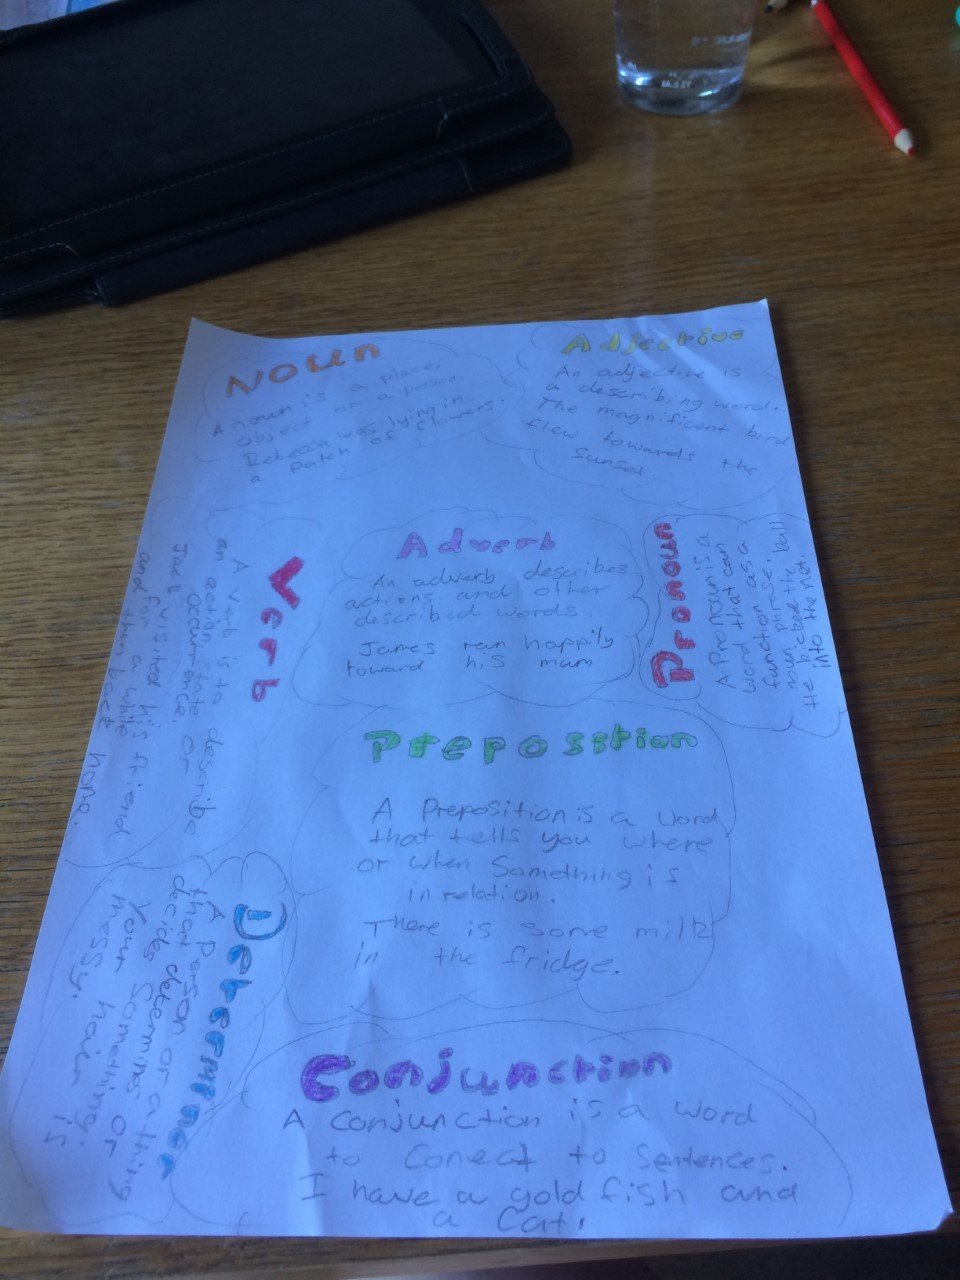 Noun
A noun is a place,
object or a person.
Rebecca was lying in
a patch of flowers.
Adjective
An adjective is
a describing word.
The magnificent bird
flew towards the
Sunset
Verb
A verb is to describe
an action, state or
occurrence.
Jack visited his friend
and for a while
and then back home.
Adverb
An adverb describes
actions and other
described words
James ran happily
toward his mum
Pronoun
A Pronoun is a
word that can
function as a
noun phrase.
He kicked the ball
into the net.
Preposition
A Preposition is a word
that tells you where
or when Something is
in relation.
There is some milk
in the fridge.
Determiner
A Person or a thing
that determins or
decides Something.
Your hair is
messy.
Conjunction
A Conjunction is a word
to Conect to Sentences.
I have a gold fish and
a Cat.